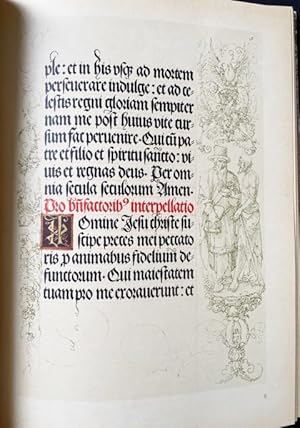 ple: et in his vsq̃ ad mortem
perseuerare indulge: et ad ce
lestis regni gloriam sempiter
nam me post huius vite cur
sum fac̃ peruenire. Qui cũ pa
tre et filio et spiritu sancto: vi
uis et regnas deus. Per om
nia secula seculorum Amen.
Pro bñfactoribꝰ interpellatio
Domine Jesu christe su
scipe preces mei peccato
ris ꝓ animabus fidelium de
functorum. Qui maiestatem
tuam pro me exorauerunt: et